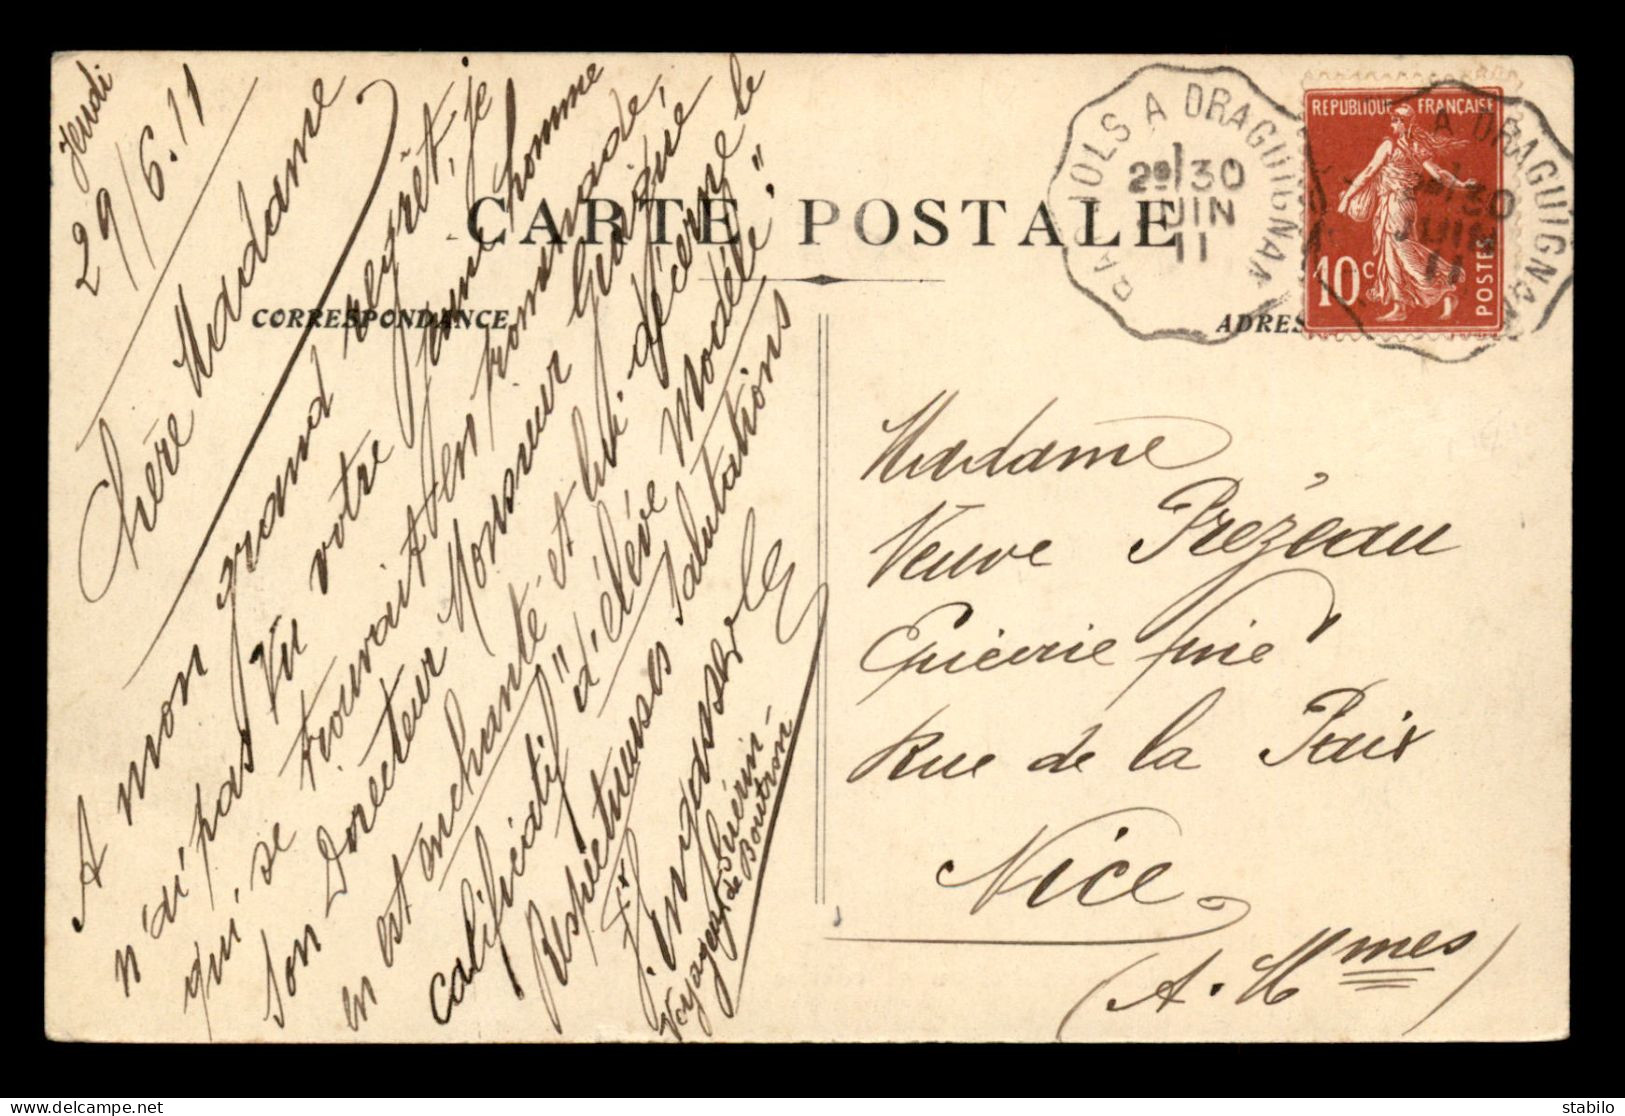 Jeudi
29/6.11
Chère Madame
A mon grand regrêt, je
n'ai pas vu votre jeune homme
qui se trouvait en promenade,
son Dorecteur Monsieur
en est enchanté et lui décerne le
califficatif "d'élève Modèle".
Respectueuses Salutations
Voyageur
de Boutron
CARTE POSTALE
CORRESPONDANCE
ADRES
REPUBLIQUE FRANÇAISE
10c
POSTES
A DRAGUIGNAN
29 30
JUIN
11
A DRAGUIGNAN
30
JUIN
11
Madame
Veuve Prézeau
Epicerie fine
Rue de la Paix
Nice
(A. Mmes)
stabilo